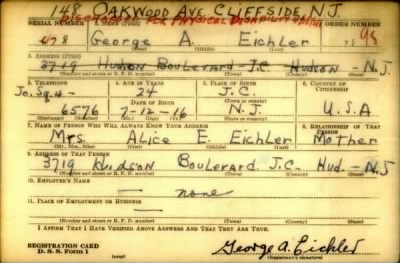 148 OAKWOOD AVE. CLIFFSIDE, N.J.
DISCHARGED FOR PHYSICAL DISABILITY
SERIAL NUMBER 1. NAME (Print) ORDER NUMBER
George A. Eichler
(First) (Middle) (Last)
2. ADDRESS (Print)
3719 Hudson Boulevard J.C. Hudson - N.J
(Number and street or R. F. D. number) (Town) (County) (State)
3. TELEPHONE 4. AGE IN YEARS 5. PLACE OF BIRTH 6. COUNTRY OF CITIZENSHIP
Jo. Sq. 4- 24 J.C.
DATE OF BIRTH (Town or county)
6576 7-12-16 N.J. U.S.A
(Mo.) (Day) (Yr.) (State or country)
7. NAME OF PERSON WHO WILL ALWAYS KNOW YOUR ADDRESS 8. RELATIONSHIP OF THAT PERSON
Mrs. Alice E. Eichler Mother
(Mr., Mrs., Miss) (First) (Middle) (Last)
9. ADDRESS OF THAT PERSON
3719 Hudson Boulevard J.C. - Hud. - N.J
(Number and street or R. F. D. number) (Town) (County) (State)
10. EMPLOYER'S NAME
— none
11. PLACE OF EMPLOYMENT OR BUSINESS
—
(Number and street or R. F. D. number) (Town) (County) (State)
I AFFIRM THAT I HAVE VERIFIED ABOVE ANSWERS AND THAT THEY ARE TRUE.
REGISTRATION CARD
D. S. S. Form 1
George A. Eichler
(Registrant's signature)